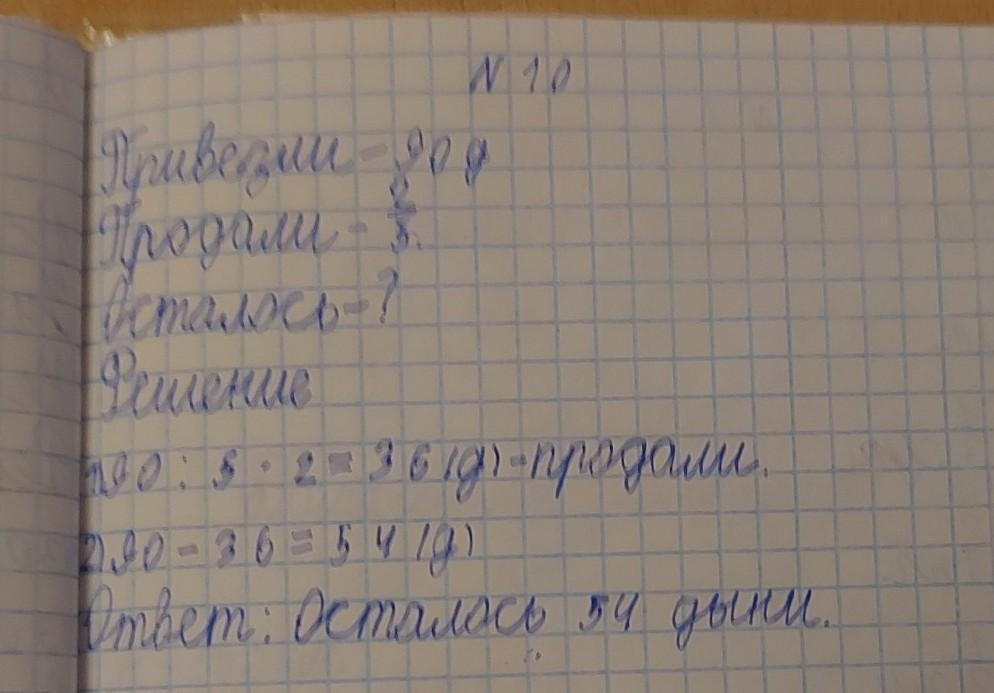 N 10
Привезли - 90 д
Продали - 2/5.
Осталось - ?
Решение
1) 90 : 5 · 2 = 36 (д) - продали.
2) 90 - 36 = 54 (д)
Ответ: Осталось 54 дыни.